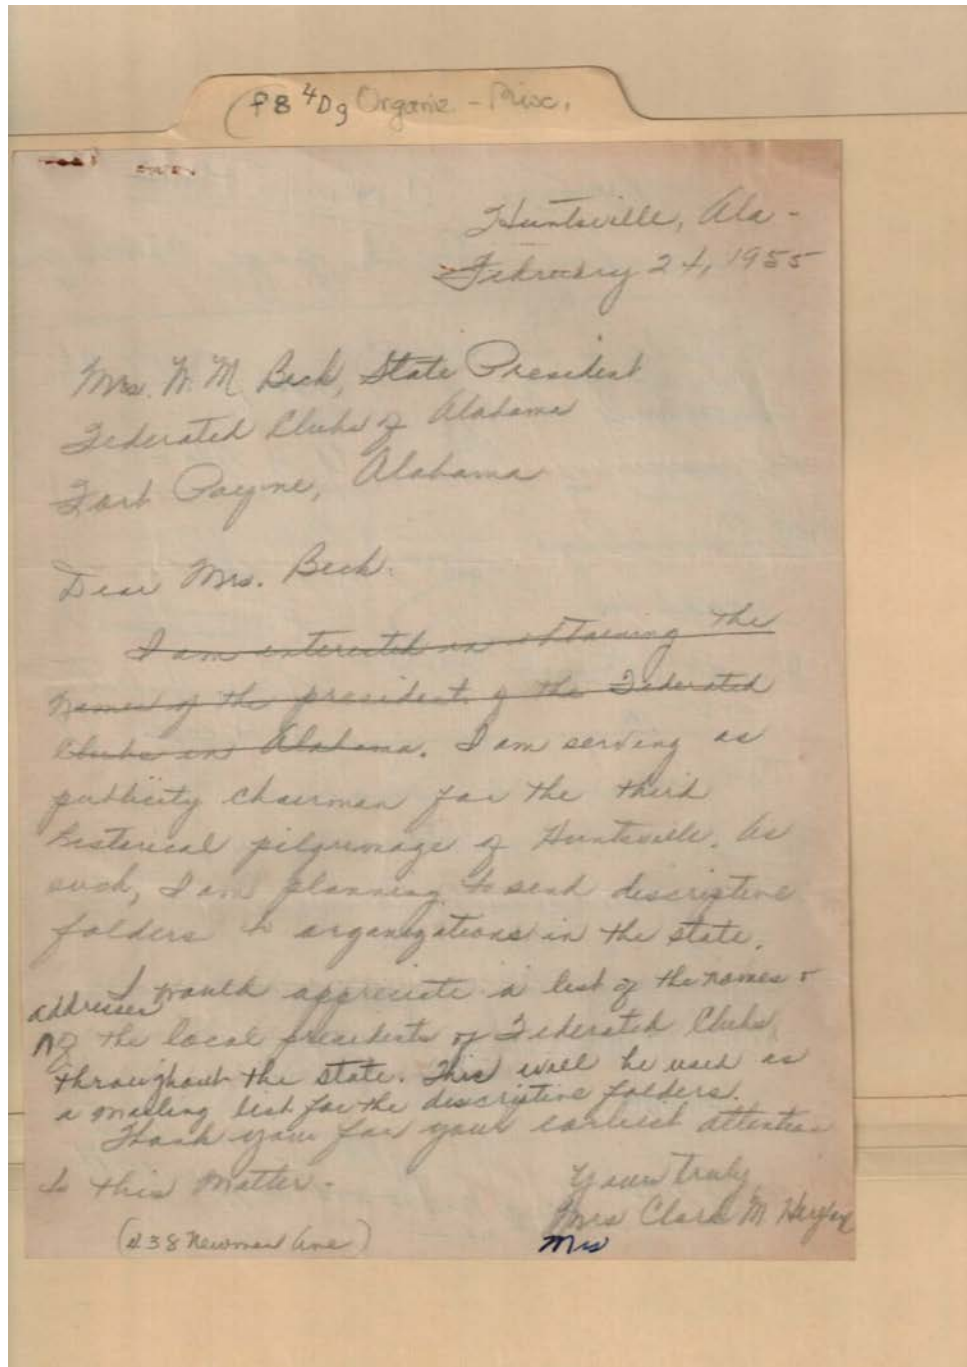 (f8 4Dg Organiz - Misc.
Huntsville, Ala -
February 24, 1955
Mrs. W. M. Beck, State President
Federated Clubs of Alabama
Fort Payne, Alabama
Dear Mrs. Beck.
I am interested in obtaining the
names of the president of the Federated
Clubs in Alabama. I am serving as
publicity chairman for the third
historical pilgrimage of Huntsville. As
such, I am planning to send descriptive
folders to organizations in the state.
I would appreciate a list of the names &
addresses
of the local presidents of Federated Clubs
throughout the state. This will be used as
a mailing list for the descriptive folders.
Thank you for your earliest attention
to this matter.
Yours truly
Mrs Clara M
(438 Newman Ave)
Mrs